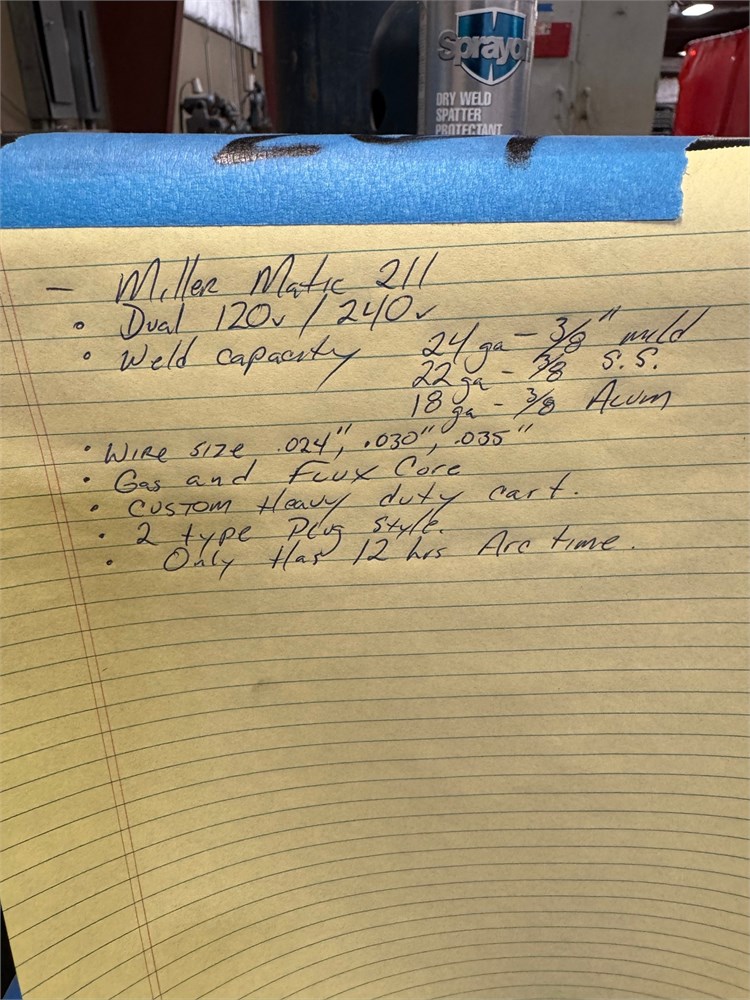 Sprayon
DRY WELD
SPATTER
PROTECTANT
— Miller Matic 211
• Dual 120v / 240v
• Weld capacity 24 ga - 3/8" mild
22 ga - 3/8 S.S.
18 ga - 3/8 Alum
• Wire size .024", .030", .035"
• Gas and Flux Core
• Custom Heavy duty cart.
• 2 type Plug style.
• Only Has 12 hrs Arc time.